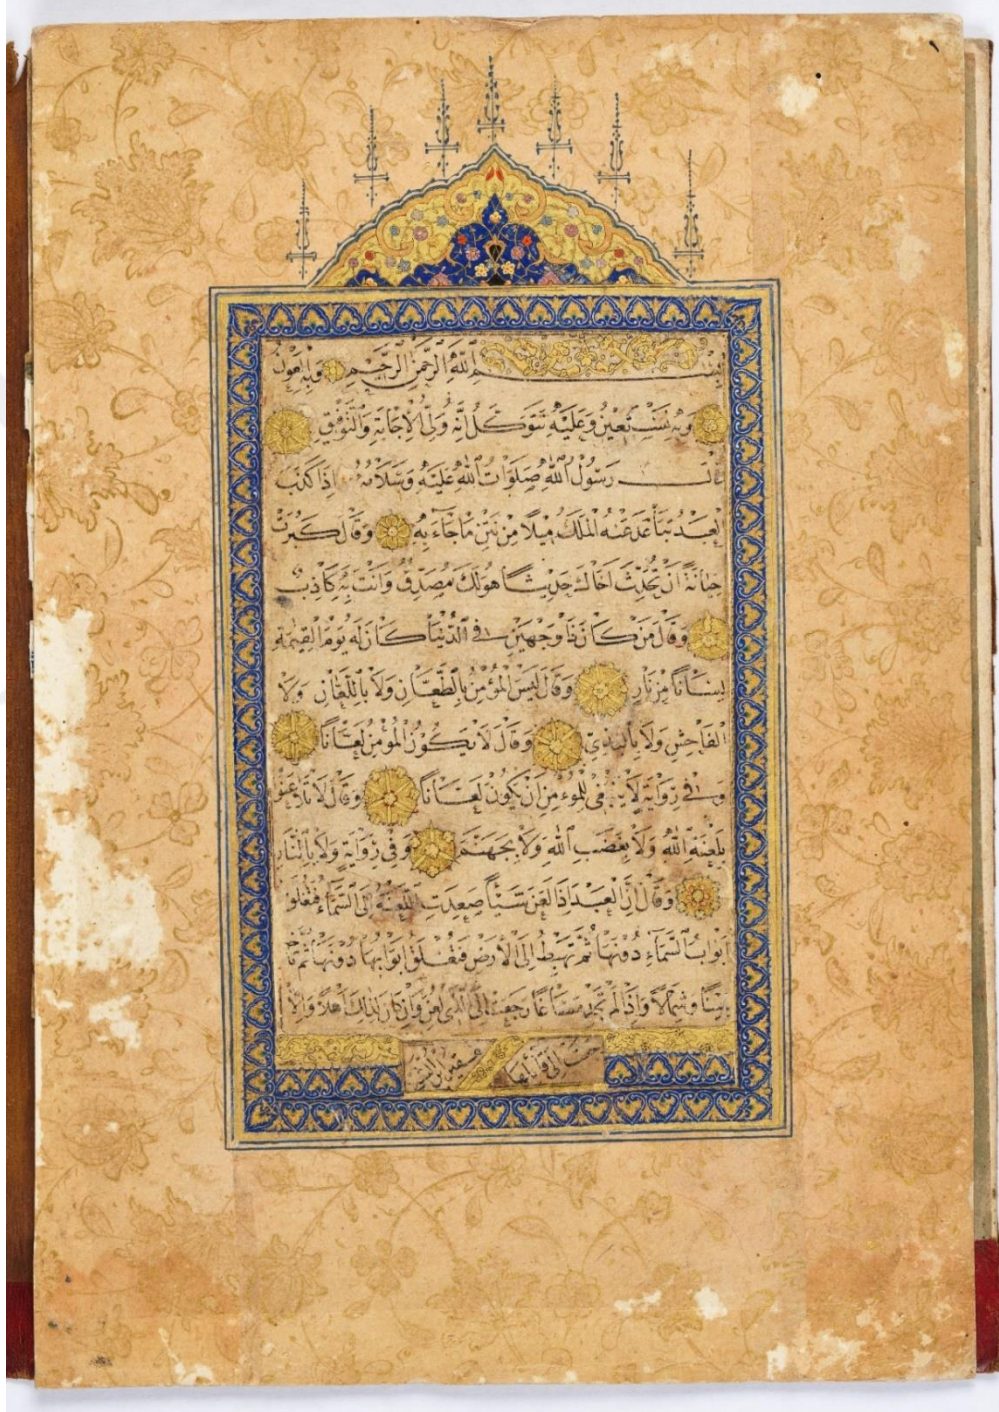 بسم الله الرحمن الرحيم وبه العون
وبه نستعين وعليه نتوكل انه ولي الاجابة والتوفيق
قال رسول الله صلوات الله عليه وسلامه اذا كذب
العبد تباعد عنه الملك ميلا من نتن ما جاء به وقال كبرت
خيانة ان تحدث اخاك حديثا هو لك مصدق وانت به كاذب
وقال من كان ذا وجهين في الدنيا كان له يوم القيمة
لسانا من نار وقال ليس المؤمن بالطعان ولا باللعان ولا
الفاحش ولا بالبذي وقال لا يكون المؤمن لعانا
وفي رواية لا ينبغي للمؤمن ان يكون لعانا وقال لا تلاعنوا
بلعنة الله ولا بغضب الله ولا بجهنم وفي رواية ولا بالنار
وقال ان العبد اذا لعن شيئا صعدت اللعنة الى السماء فتغلق
ابواب السماء دونها ثم تهبط الى الارض فتغلق ابوابها دونها ثم تأخذ
يمينا وشمالا واذا لم تجد مساغا رجعت الى الذي لعن وان كان لذلك اهلا والا
رجعت الى قائلها